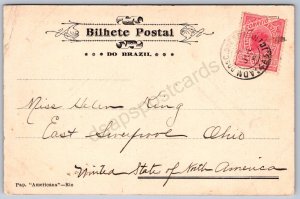 Bilhete Postal
DO BRAZIL
Miss Helen King
East Liverpool Ohio
United State of North America
Pap. "Americana"—Rio